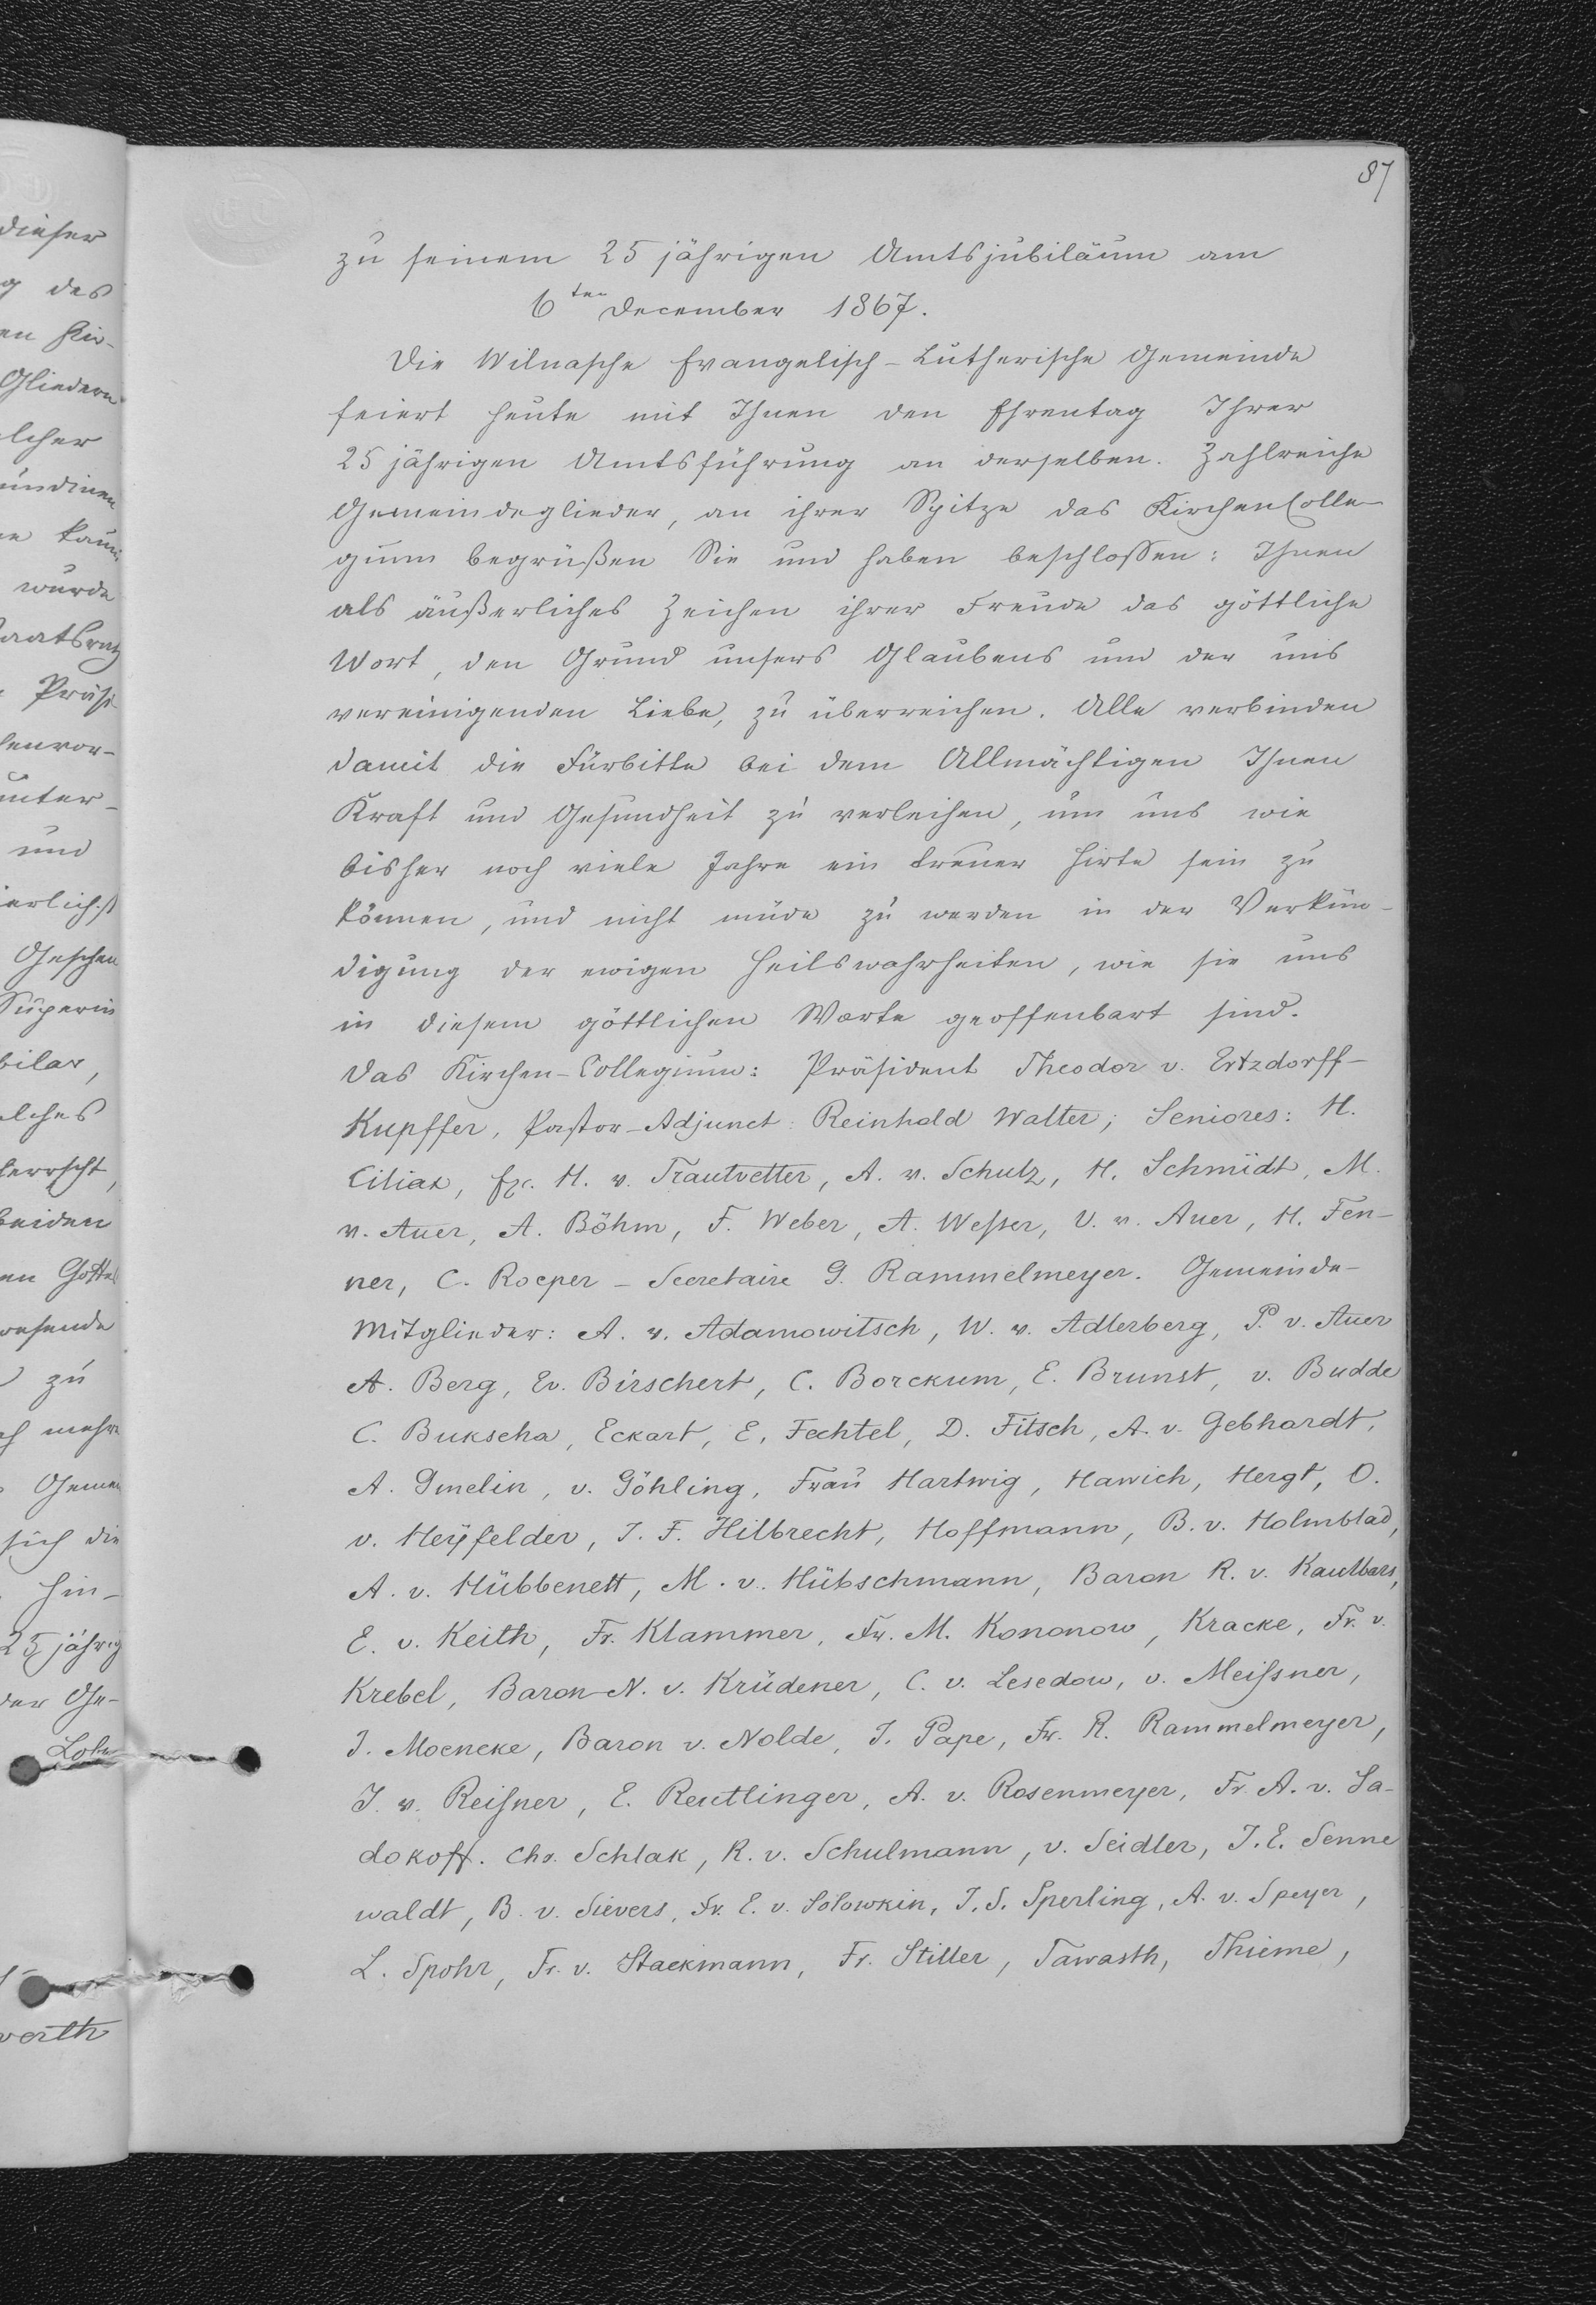 87
zu seinem 25 jährigen Amtsjubiläum am
6ten December 1867.
Die Wilnasche Evangelisch-Lutherische Gemeinde
feiert heute mit Ihnen den Ehrentag Ihrer
25 jährigen Amtsführung an derselben. Zahlreiche
Gemeindeglieder, an ihrer Spitze das KirchenColle-
gium begrüßen Sie und haben beschlossen: Ihnen
als äußerliches Zeichen ihrer Freude das göttliche
Wort, den Grund unsers Glaubens und der uns
vereinigenden Liebe, zu überreichen. Alle verbinden
damit die Fürbitte bei dem Allmächtigen Ihnen
Kraft und Gesundheit zu verleihen, um uns wie
bisher noch viele Jahre ein treuer Hirte sein zu
können, und nicht müde zu werden in der Verkün-
digung der ewigen Heilswahrheiten, wie sie uns
in diesem göttlichen Worte geoffenbart sind.
Das Kirchen-Collegium: Präsident Theodor v. Ertzdorff-
Kupffer, Pastor-Adjunct: Reinhold Walter; Seniores: H.
Ciliax, Ex. H. v. Trautvetter, A. v. Schulz, H. Schmidt, M.
v. Auer, A. Böhm, F. Weber, A. Wesser, V. v. Auer, H. Fen-
ner, C. Roeper - Secretaire G. Rammelmeyer. Gemeinde-
Mitglieder: A. v. Adamowitsch, W. v. Adlerberg, P. v. Auer
A. Berg, Ev. Birschert, C. Borckum, E. Brunst, v. Budde
C. Bukscha, Eckart, E. Fechtel, D. Fitsch, A. v. Gebhardt,
A. Gmelin, v. Göhling, Frau Hartwig, Hawich, Hergt, O.
v. Heyfelder, J. F. Hilbrecht, Hoffmann, B. v. Holmblad,
A. v. Hübbenett, M. v. Hübschmann, Baron R. v. Kaulbars,
E. v. Keith, Fr. Klammer, Fr. M. Kononow, Kracke, Fr. v.
Krebel, Baron N. v. Krüdener, C. v. Lesedow, v. Meissner,
J. Moencke, Baron v. Nolde, J. Pape, Fr. R. Rammelmeyer,
J. v. Reisner, E. Reutlinger, A. v. Rosenmeyer, Fr. A. v. Sa-
dokoff. Chr. Schlak, R. v. Schulmann, v. Seidler, J. E. Senne
waldt, B. v. Sievers, Fr. E. v. Solowkin, J. S. Sperling, A. v. Speyer,
L. Spohr, Fr. v. Stackmann, Fr. Stiller, Tawasth, Thieme,